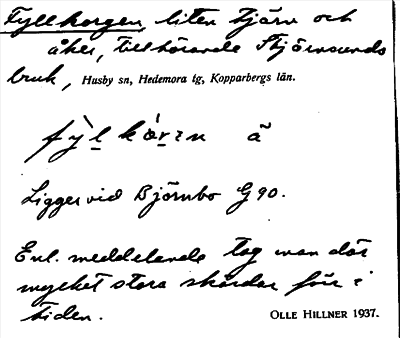 Fyllkorgen, liten tjärn och
åker, tillhörande Stjärnsunds
bruk, Husby sn, Hedemora tg, Kopparbergs län.
fỳl kárɛn ã
Ligger vid Björnbo G 90.
Enl. meddelande tog man där
mycket stora skördar förr i
tiden.
OLLE HILLNER 1937.